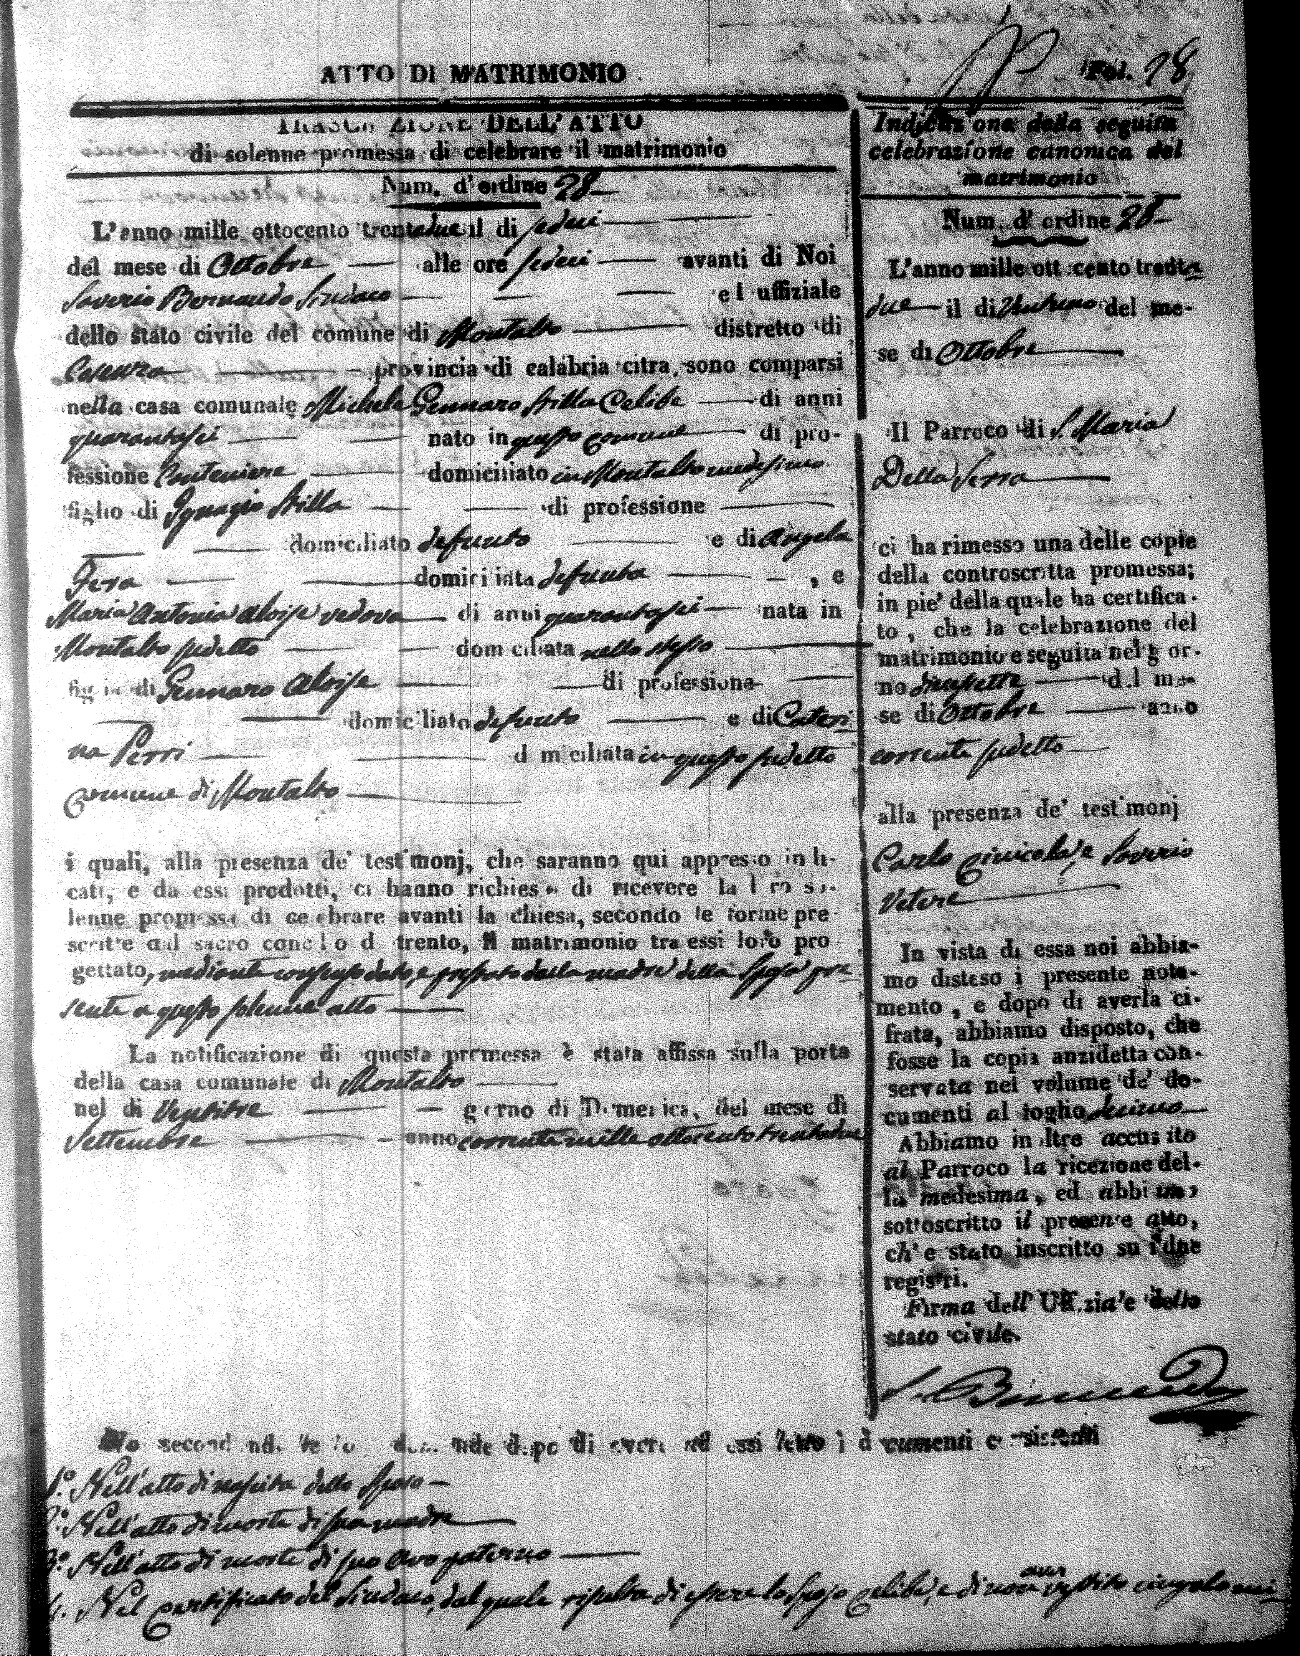 ATTO DI MATRIMONIO
Fol. 28
TRASCRIZIONE DELL'ATTO
di solenne promessa di celebrare il matrimonio
Num. d'ordine 28
L'anno mille ottocento trentadue il di sedici
del mese di Ottobre alle ore sedici avanti di Noi
Saverio Bernaudo Sindaco ed uffiziale
dello stato civile del comune di Montalto distretto di
Cosenza provincia di calabria citra, sono comparsi
nella casa comunale Michele Gennaro Stilla Celibe di anni
quarantasei nato in questo comune di pro-
fessione domiciliato in Montalto medesimo
figlio di Ignazio Stilla di professione
domiciliato defunto e di Angela
Fera domiciliata defunta , e
Maria Antonia Aloise vedova di anni quarantasei nata in
Montalto sudetto domiciliata nello stesso
figlia di Gennaro Aloise di professione
domiciliato defunto e di Cateri
na Perri domiciliata in questo sudetto
Comune di Montalto
i quali, alla presenza de' testimonj, che saranno qui appresso indi-
cati, e da essi prodotti, ci hanno richiesto di ricevere la loro so-
lenne promessa di celebrare avanti la chiesa, secondo le forme pre-
scritte dal sacro concilio di trento, il matrimonio tra essi loro pro
gettato, mediante consenso dato, e prestato dalla madre della Sposa pre
sente a questo solenne atto
La notificazione di questa promessa è stata affissa sulla porta
della casa comunale di Montalto
nel di Ventitre giorno di Domenica, del mese di
Settembre anno corrente mille ottocento trentadue
Indicazione della seguita
celebrazione canonica del
matrimonio
Num. d'ordine 28
L'anno mille ottocento trenta
due il di Ventuno del me-
se di Ottobre
Il Parroco di S. Maria
Della Serra
ci ha rimesso una delle copie
della controscritta promessa;
in pie' della quale ha certifica-
to, che la celebrazione del
matrimonio e seguita nel gior-
no diciasette del me-
se di Ottobre anno
corrente sudetto
alla presenza de' testimonj
Carlo e Saverio
Vetere
In vista di essa noi abbia-
mo disteso il presente nota-
mento, e dopo di averla ci-
frata, abbiamo disposto, che
fosse la copia anzidetta con-
servata nel volume de' do-
cumenti al foglio decimo
Abbiamo inoltre accusato
al Parroco la ricezione del-
la medesima, ed abbiamo
sottoscritto il presente atto,
ch'e stato inscritto su i due
registri.
Firma dell' Uffiziale dello
stato civile.
S. Bernaudo
No secondi di averi ad essi letto i documenti consistenti
1.º Nell'atto di nascita dello Sposo
2.º Nell'atto di morte di sua madre
3.º Nell'atto di morte di suo Avo paterno
4. Nel Certificato del Sindaco, dal quale risulta di essere lo Sposo Celibe, e di non aver vestito cingolo mi